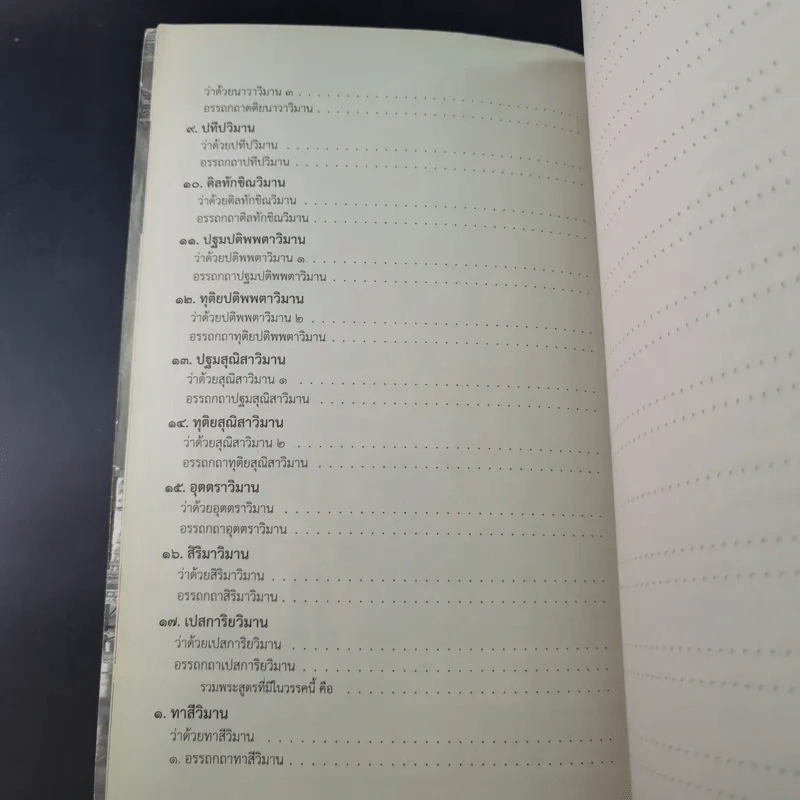 ว่าด้วยนาวาวิมาน ๓
อรรถกถาตติยนาวาวิมาน
๙. ปทีปวิมาน
ว่าด้วยปทีปวิมาน
อรรถกถาปทีปวิมาน
๑๐. ติลทักขิณวิมาน
ว่าด้วยติลทักขิณวิมาน
อรรถกถาติลทักขิณวิมาน
๑๑. ปฐมปติพพตาวิมาน
ว่าด้วยปติพพตาวิมาน ๑
อรรถกถาปฐมปติพพตาวิมาน
๑๒. ทุติยปติพพตาวิมาน
ว่าด้วยปติพพตาวิมาน ๒
อรรถกถาทุติยปติพพตาวิมาน
๑๓. ปฐมสุณิสาวิมาน
ว่าด้วยสุณิสาวิมาน ๑
อรรถกถาปฐมสุณิสาวิมาน
๑๔. ทุติยสุณิสาวิมาน
ว่าด้วยสุณิสาวิมาน ๒
อรรถกถาทุติยสุณิสาวิมาน
๑๕. อุตตราวิมาน
ว่าด้วยอุตตราวิมาน
อรรถกถาอุตตราวิมาน
๑๖. สิริมาวิมาน
ว่าด้วยสิริมาวิมาน
อรรถกถาสิริมาวิมาน
๑๗. เปสการิยวิมาน
ว่าด้วยเปสการิยวิมาน
อรรถกถาเปสการิยวิมาน
รวมพระสูตรที่มีในวรรคนี้ คือ
๑. ทาสีวิมาน
ว่าด้วยทาสีวิมาน
๑. อรรถกถาทาสีวิมาน